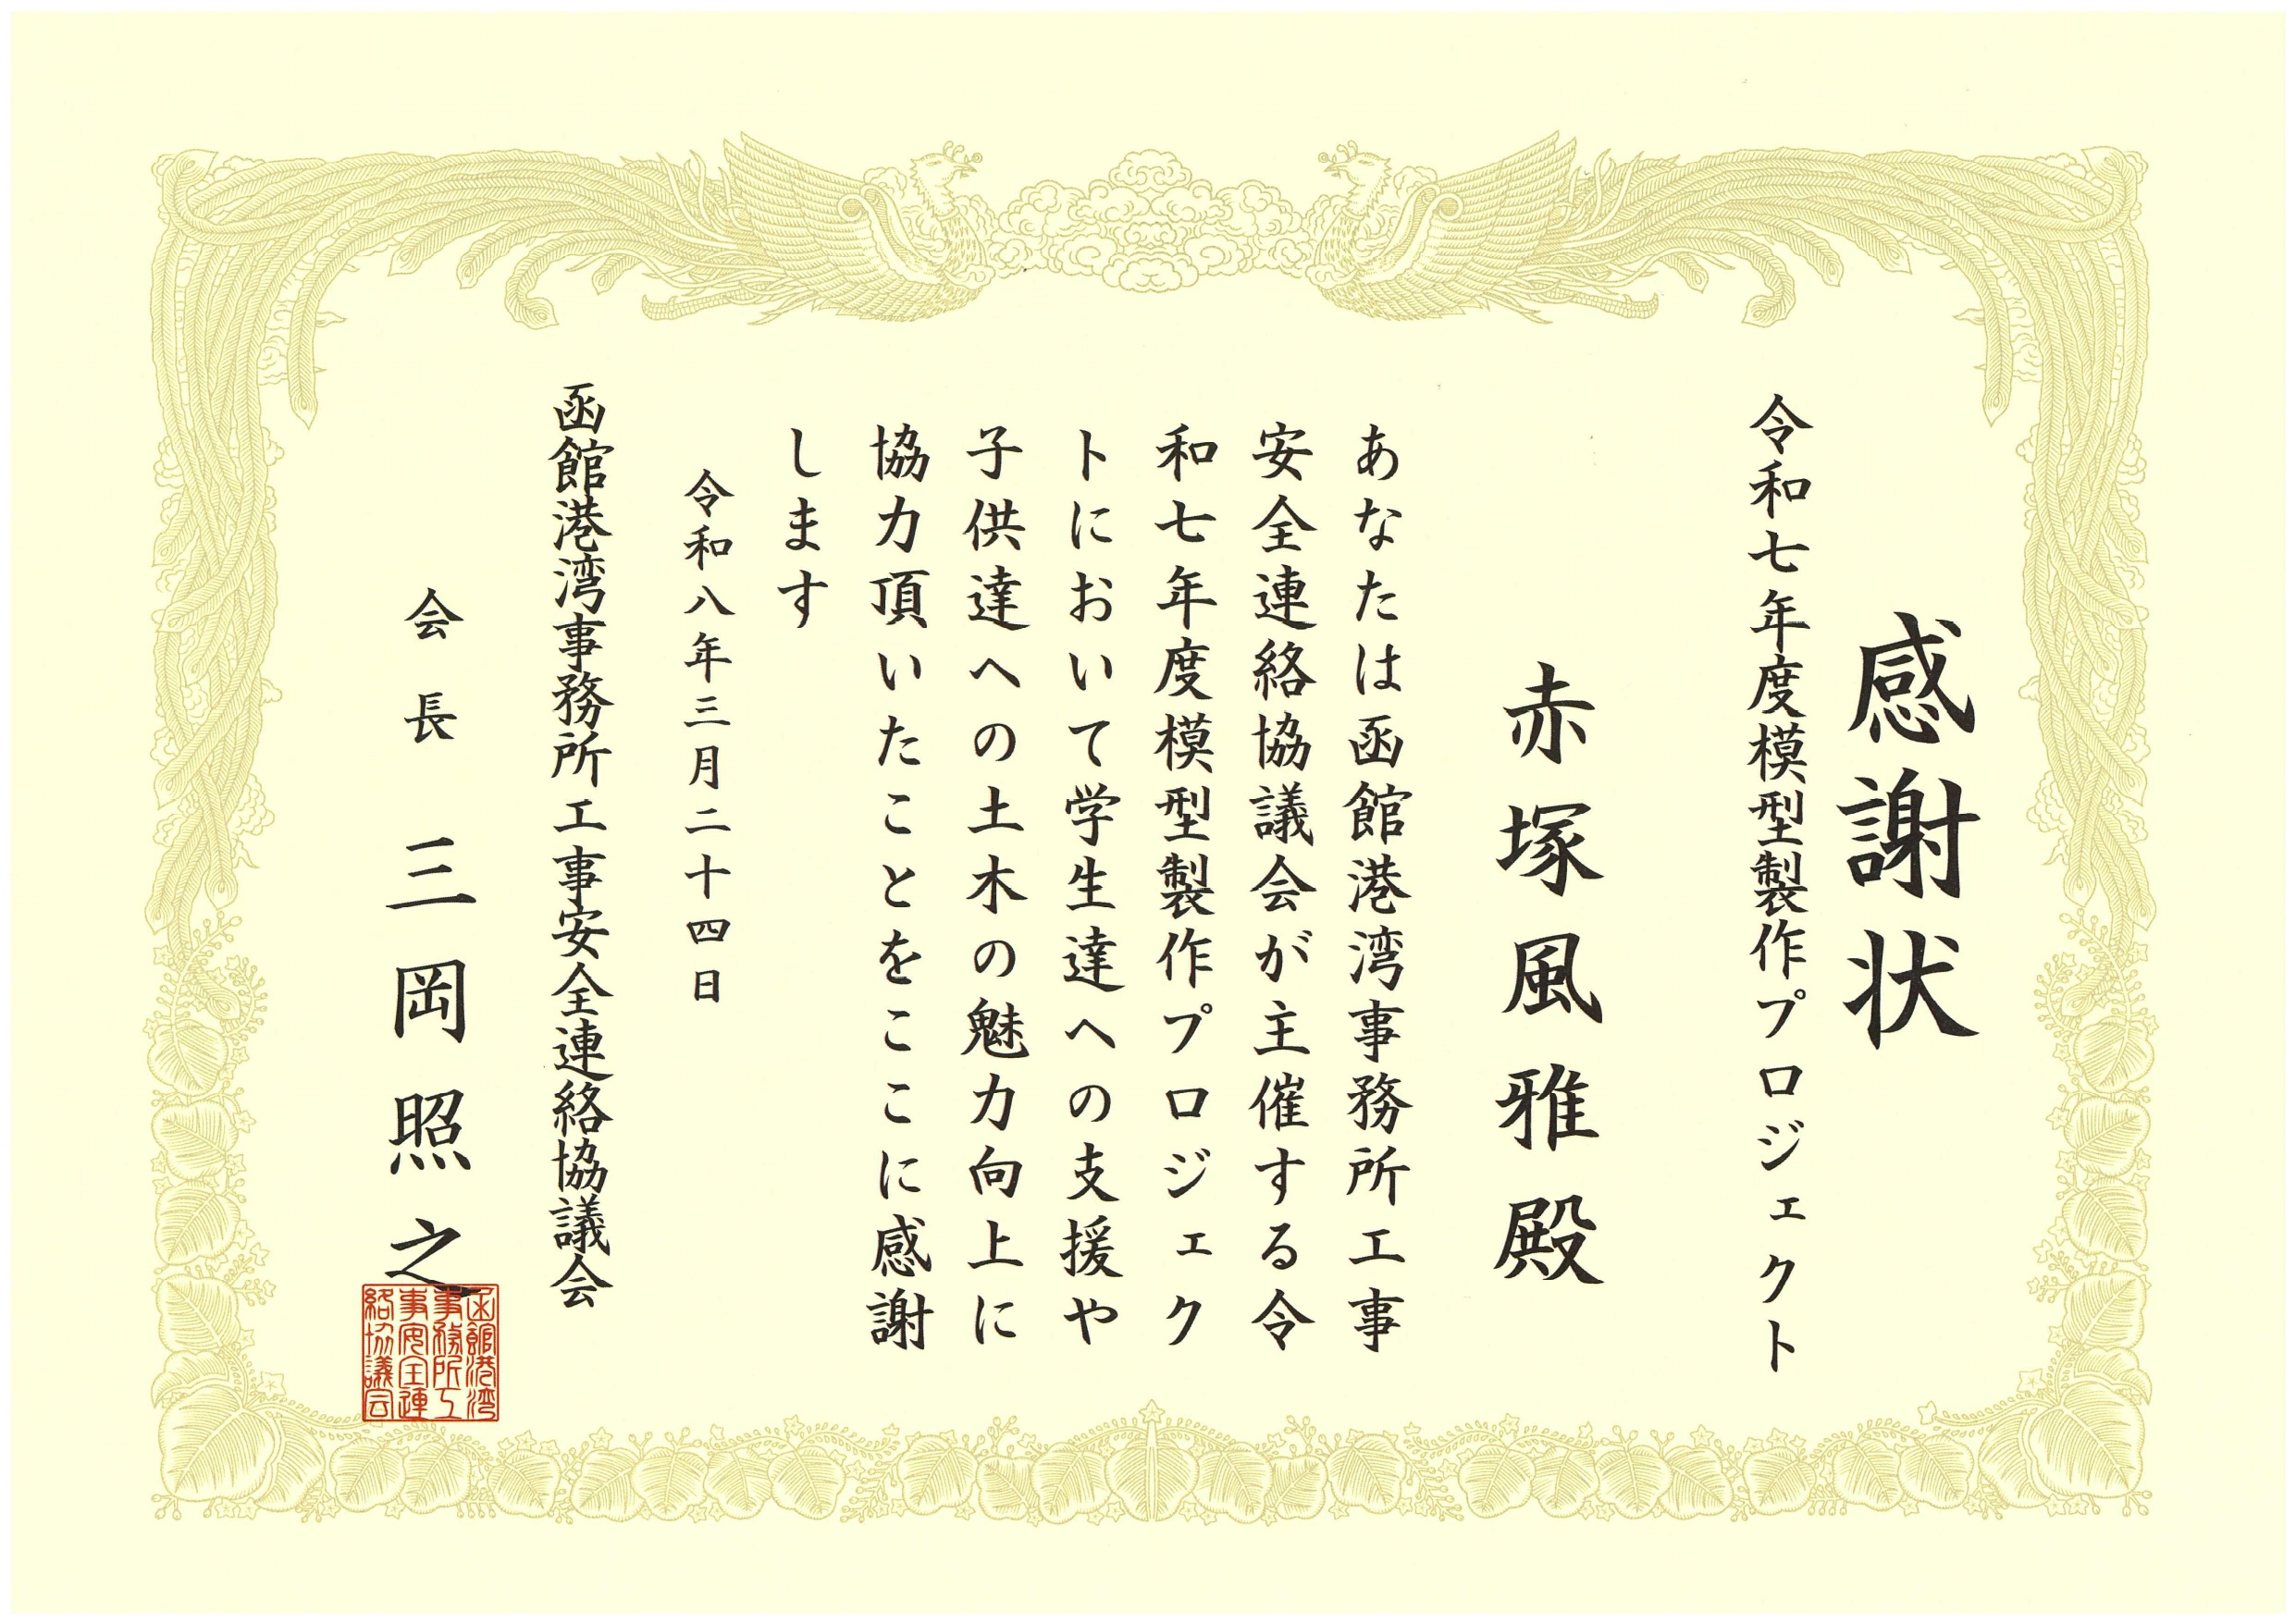 感謝状
令和七年度模型製作プロジェクト
赤塚風雅殿
あなたは函館港湾事務所工事
安全連絡協議会が主催する令
和七年度模型製作プロジェク
トにおいて学生達への支援や
子供達への土木の魅力向上に
協力頂いたことをここに感謝
します
令和八年三月二十四日
函館港湾事務所工事安全連絡協議会
会長 三岡照之
函館港湾
事務所工
事安全連
絡協議会